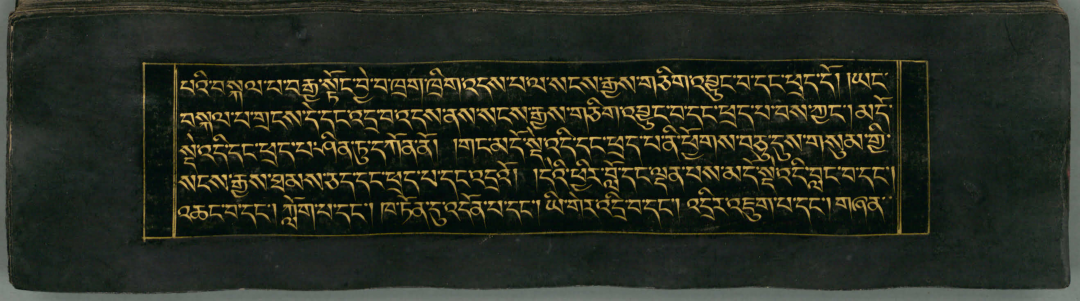 པའི་བསྐལ་པ་བརྒྱ་སྟོང་བྱེ་བ་ཁྲག་ཁྲིག་འདས་པ་ལ་སངས་རྒྱས་གཅིག་འབྱུང་བ་དང་ཕྲད་དོ། །ཡང་
བསྐལ་པ་གྲངས་དེ་དང་འདྲ་བ་འདས་ནས་སངས་རྒྱས་གཅིག་འབྱུང་བ་དང་ཕྲད་པ་བས་ཀྱང་། མདོ་
སྡེ་འདི་དང་ཕྲད་པ་ཤིན་ཏུ་དཀོན་ནོ། །གང་མདོ་སྡེ་འདི་དང་ཕྲད་པ་ནི་ཕྱོགས་བཅུ་དུས་གསུམ་གྱི་
སངས་རྒྱས་ཐམས་ཅད་དང་ཕྲད་པ་དང་འདྲའོ། །དེའི་ཕྱིར་བློ་དང་ལྡན་པས་མདོ་སྡེ་འདི་བླང་བ་དང་།
འཆང་བ་དང་། ཀློག་པ་དང་། ཁ་ཏོན་དུ་འདོན་པ་དང་། ཡི་གེར་འདྲི་བ་དང་། འདྲིར་འཇུག་པ་དང་། གཞན་